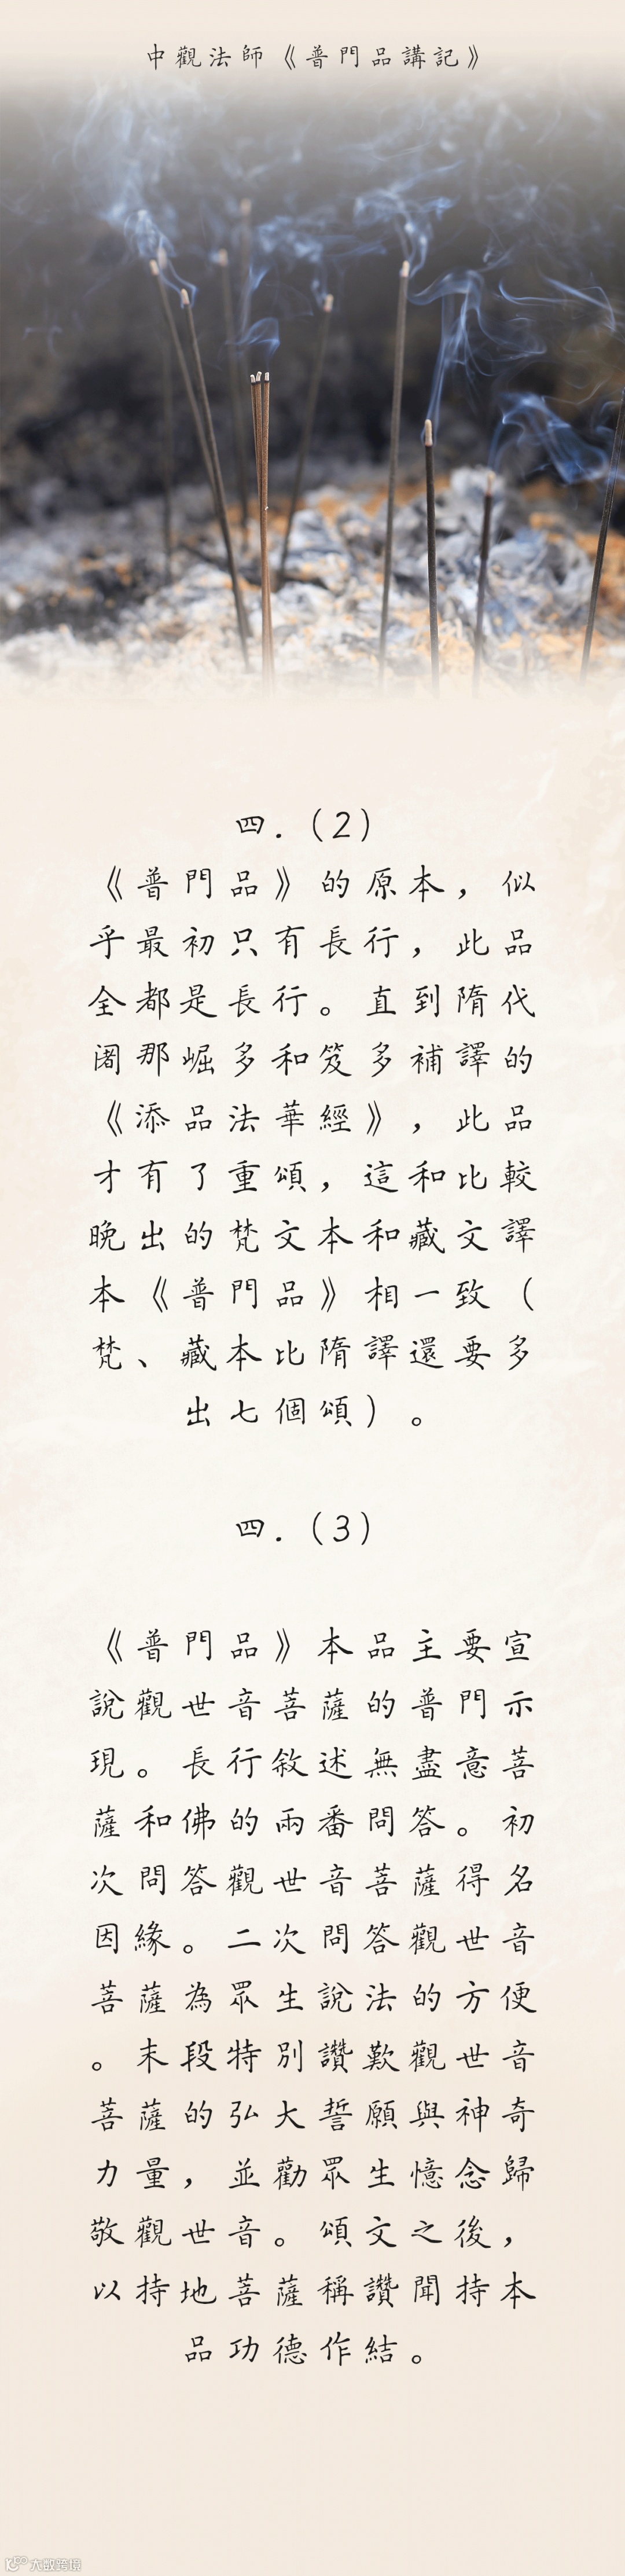 中觀法師《普門品講記》
四.（2）
《普門品》的原本，似
乎最初只有長行，此品
全都是長行。直到隋代
闍那崛多和笈多補譯的
《添品法華經》，此品
才有了重頌，這和比較
晚出的梵文本和藏文譯
本《普門品》相一致（
梵、藏本比隋譯還要多
出七個頌）。
四.（3）
《普門品》本品主要宣
說觀世音菩薩的普門示
現。長行敘述無盡意菩
薩和佛的兩番問答。初
次問答觀世音菩薩得名
因緣。二次問答觀世音
菩薩為眾生說法的方便
。末段特別讚歎觀世音
菩薩的弘大誓願與神奇
力量，並勸眾生憶念歸
敬觀世音。頌文之後，
以持地菩薩稱讚聞持本
品功德作結。
大數跨境